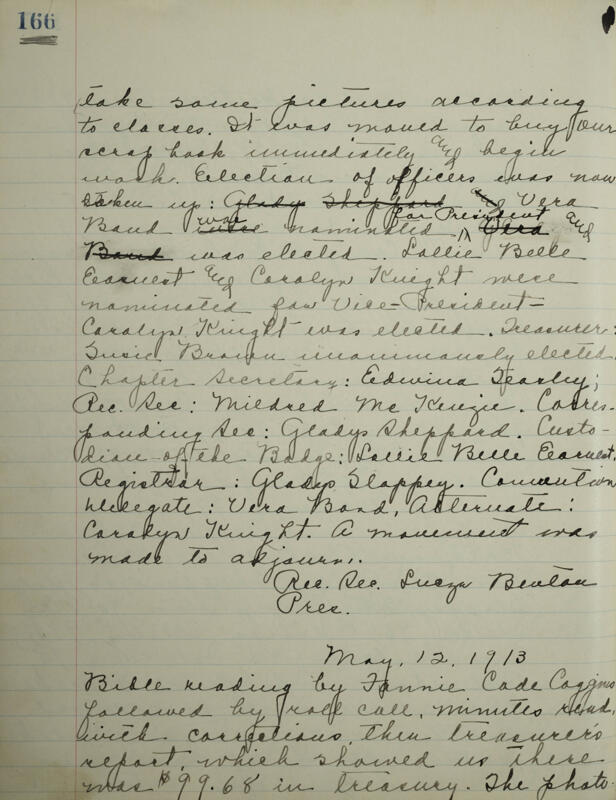 166
take some pictures according
to classes. It was moved to buy our
scrap book immediately and begin
work. Election of officers was now
taken up: Glady Sheppard and Vera
Band were was nominated for President Vera and
Band was elected. Lollie Belle
Earnest and Carolyn Knight were
nominated for Vice-President-
Carolyn Knight was elected. Treasurer:
Susie Brown unanimously elected
Chapter Secretary: Edwina Teasley;
Rec. Sec: Mildred Mc Kenzie. Corres-
ponding Sec: Gladys Sheppard. Custo-
dian of the Badge: Lollie Belle Earnest.
Registrar: Gladys Slappey. Convention
Delegate: Vera Bond, Alternate:
Carolyn Knight. A movement was
made to adjourn.
Rec. Sec. Benton
Pres.
May, 12, 1913
Bible reading by Fannie Cade Coggins
followed by roll call, minutes read,
with corrections, then treasurer's
report, which showed us there
was $99.68 in treasury. The photo-